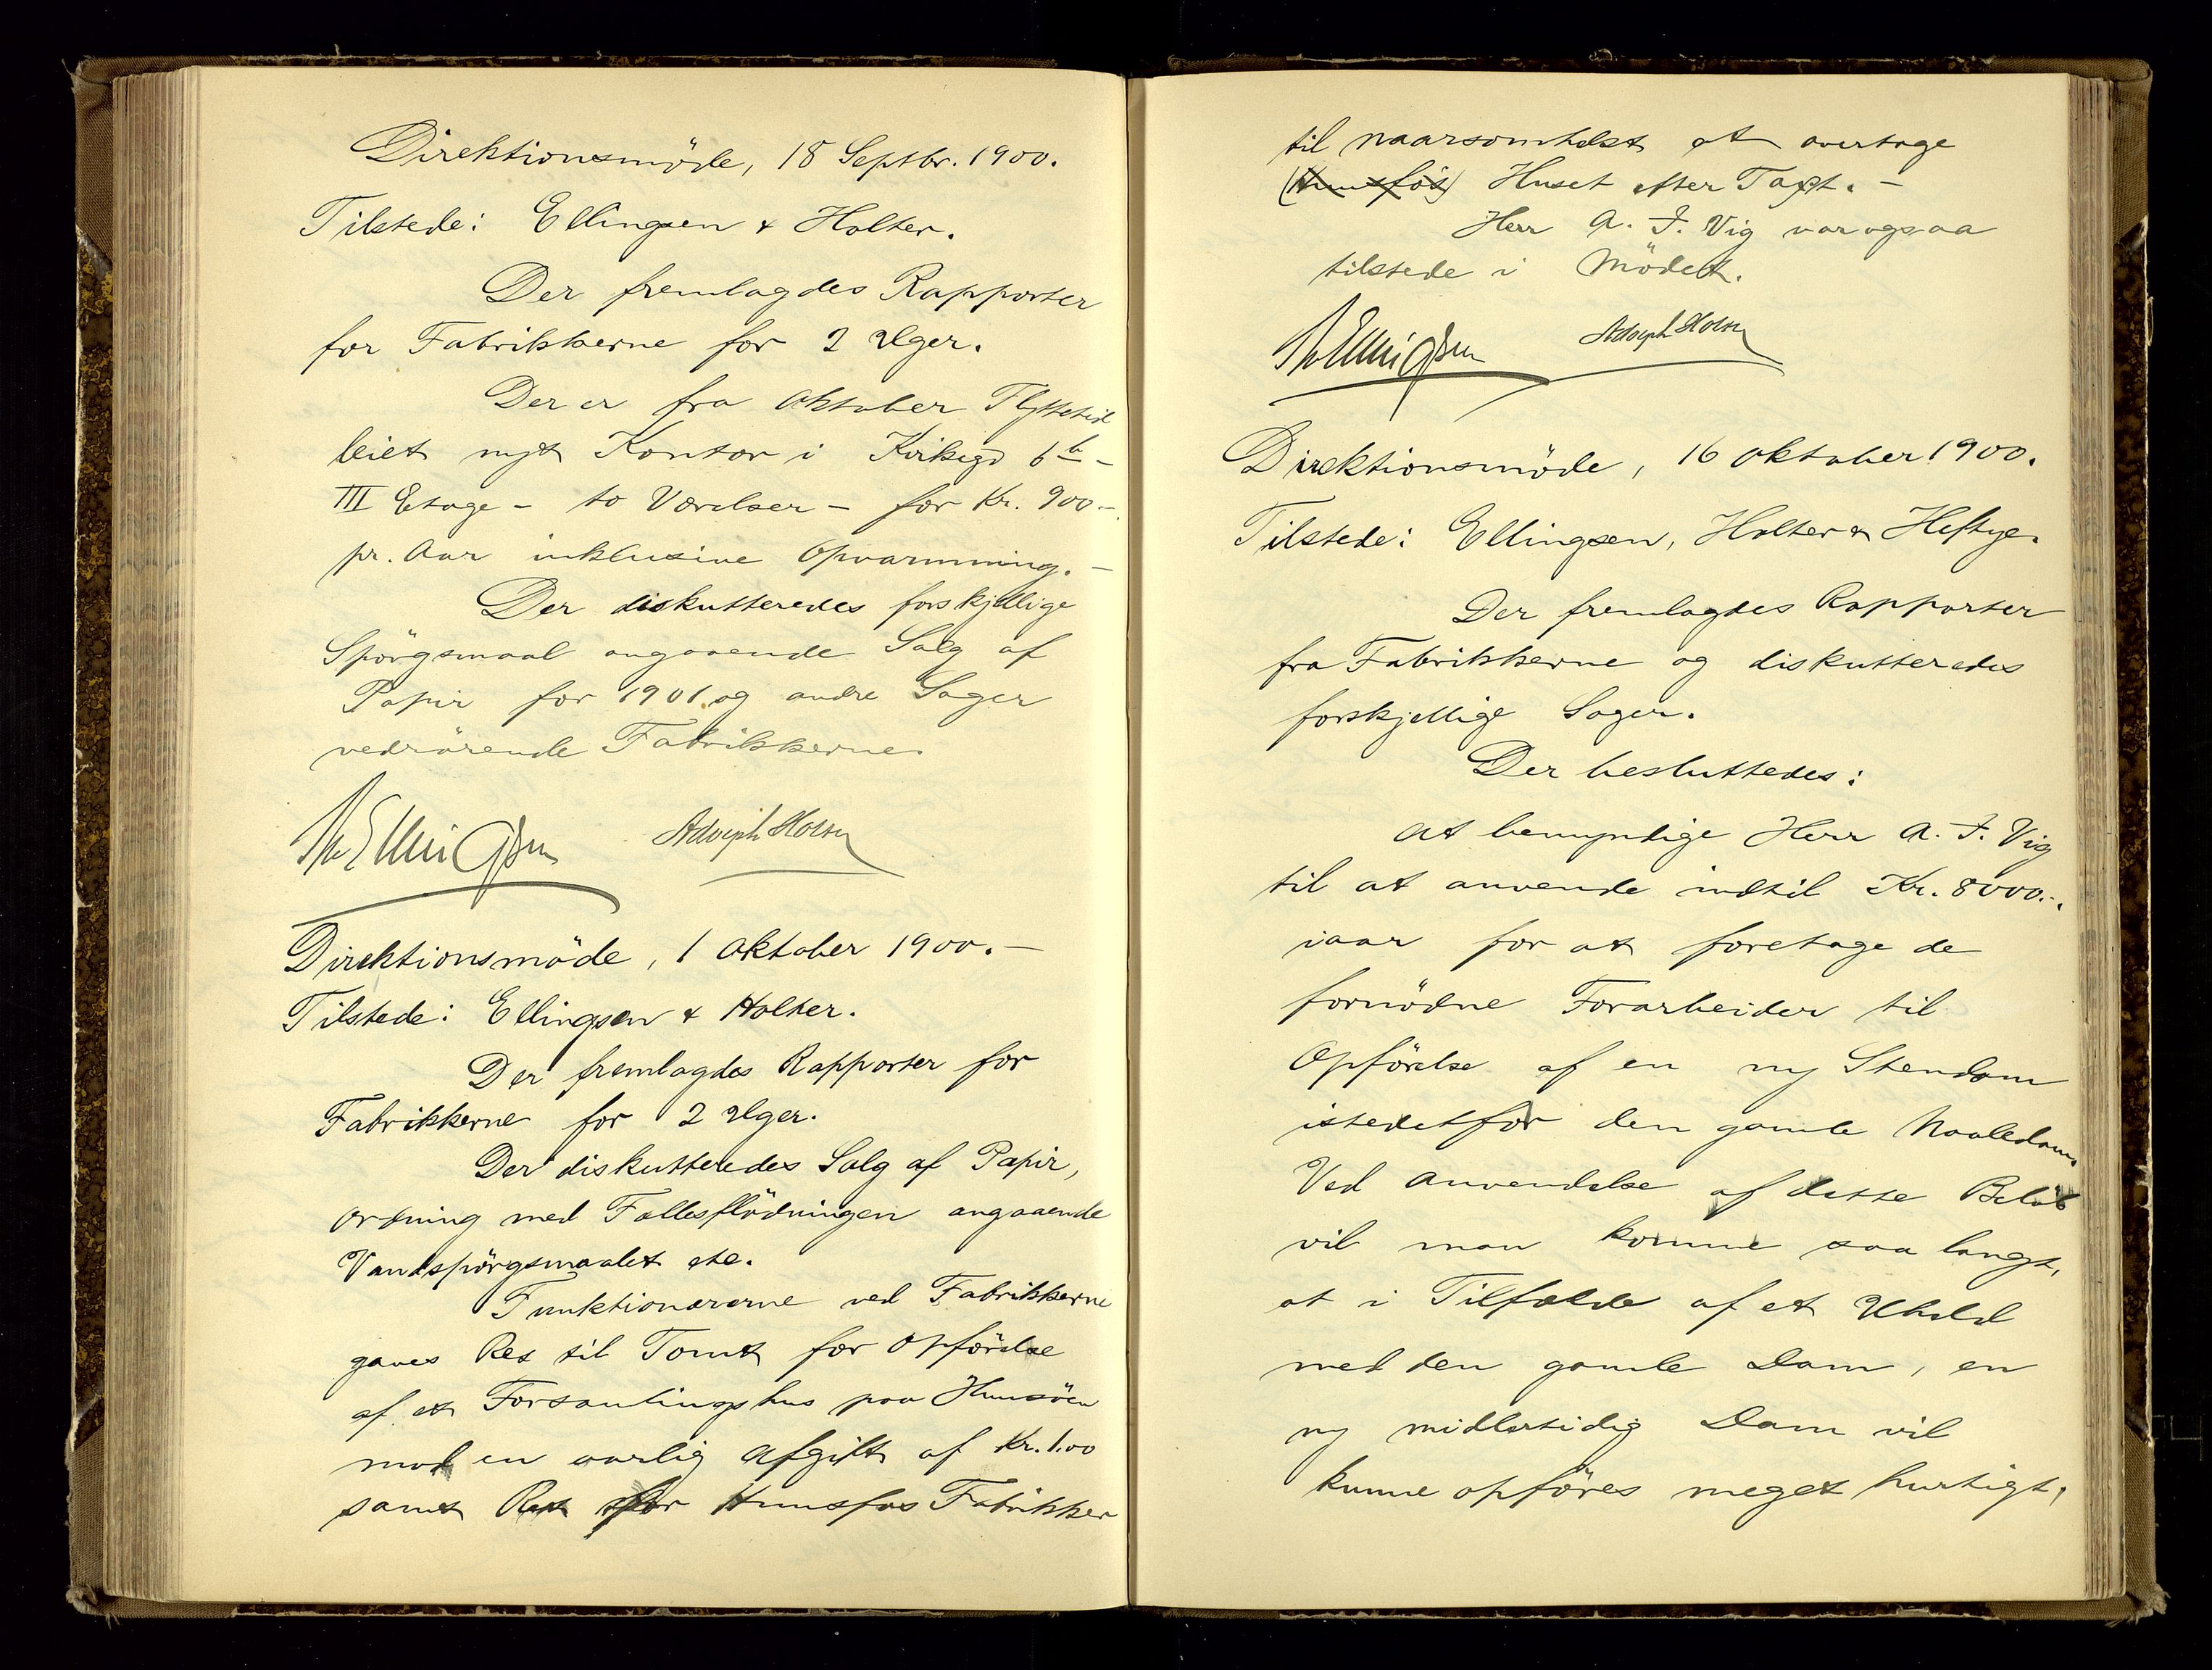 Direktionsmöde, 18 Septbr. 1900.
Tilstede: Ellingsen & Holter.
Der fremlagdes Rapporter
for Fabrikkerne for 2 Uger.
Der er fra Oktober Flyttetid
leiet nyt Kontor i Kirkegd 6b –
III Etage – to Værelser – for Kr. 900 –
pr. Aar inklusive Opvarmning. –
Der diskutteredes forskjellige
Spörgsmaal angaaende Salg af
Papir for 1901 og andre Sager
vedrörende Fabrikkerne.
Th Ellingsen Adolph Holter
Direktionsmöde, 1 Oktober 1900. –
Tilstede: Ellingsen & Holter.
Der fremlagdes Rapporter for
Fabrikkerne for 2 Uger.
Der diskutteredes Salg af Papir,
Ordning med Fællesflödningen angaaende
Vandspörgsmaalet etc.
Funktionærerne ved Fabrikkerne
gaves Ret til Tomt for Opförelse
af et Forsamlingshus paa Hunsöen
mod en aarlig Afgift af Kr. 1.00
samt Ret for Hunsfos Fabrikker
til naarsomhelst at overtage
(Hunsfos) Huset efter Taxt. –
Herr A. J. Vig var ogsaa
tilstede i Mödet.
Th Ellingsen Adolph Holter
Direktionsmöde, 16 Oktober 1900.
Tilstede: Ellingsen, Holter & Heftye.
Der fremlagdes Rapporter
fra Fabrikkerne og diskutteredes
forskjellige Sager.
Der besluttedes:
At bemyndige Herr A. J. Vig
til at anvende indtil Kr. 8000.-.
iaar for at foretage de
fornödne Forarbeider til
Opförelse af en ny Stendam
istedetfor den gamle Naaledam.
Ved Anvendelse af dette Belöb
vil man komme saa langt,
at i Tilfælde af et Uheld
med den gamle Dam, en
ny midlertidig Dam vil
kunne opföres meget hurtigt,